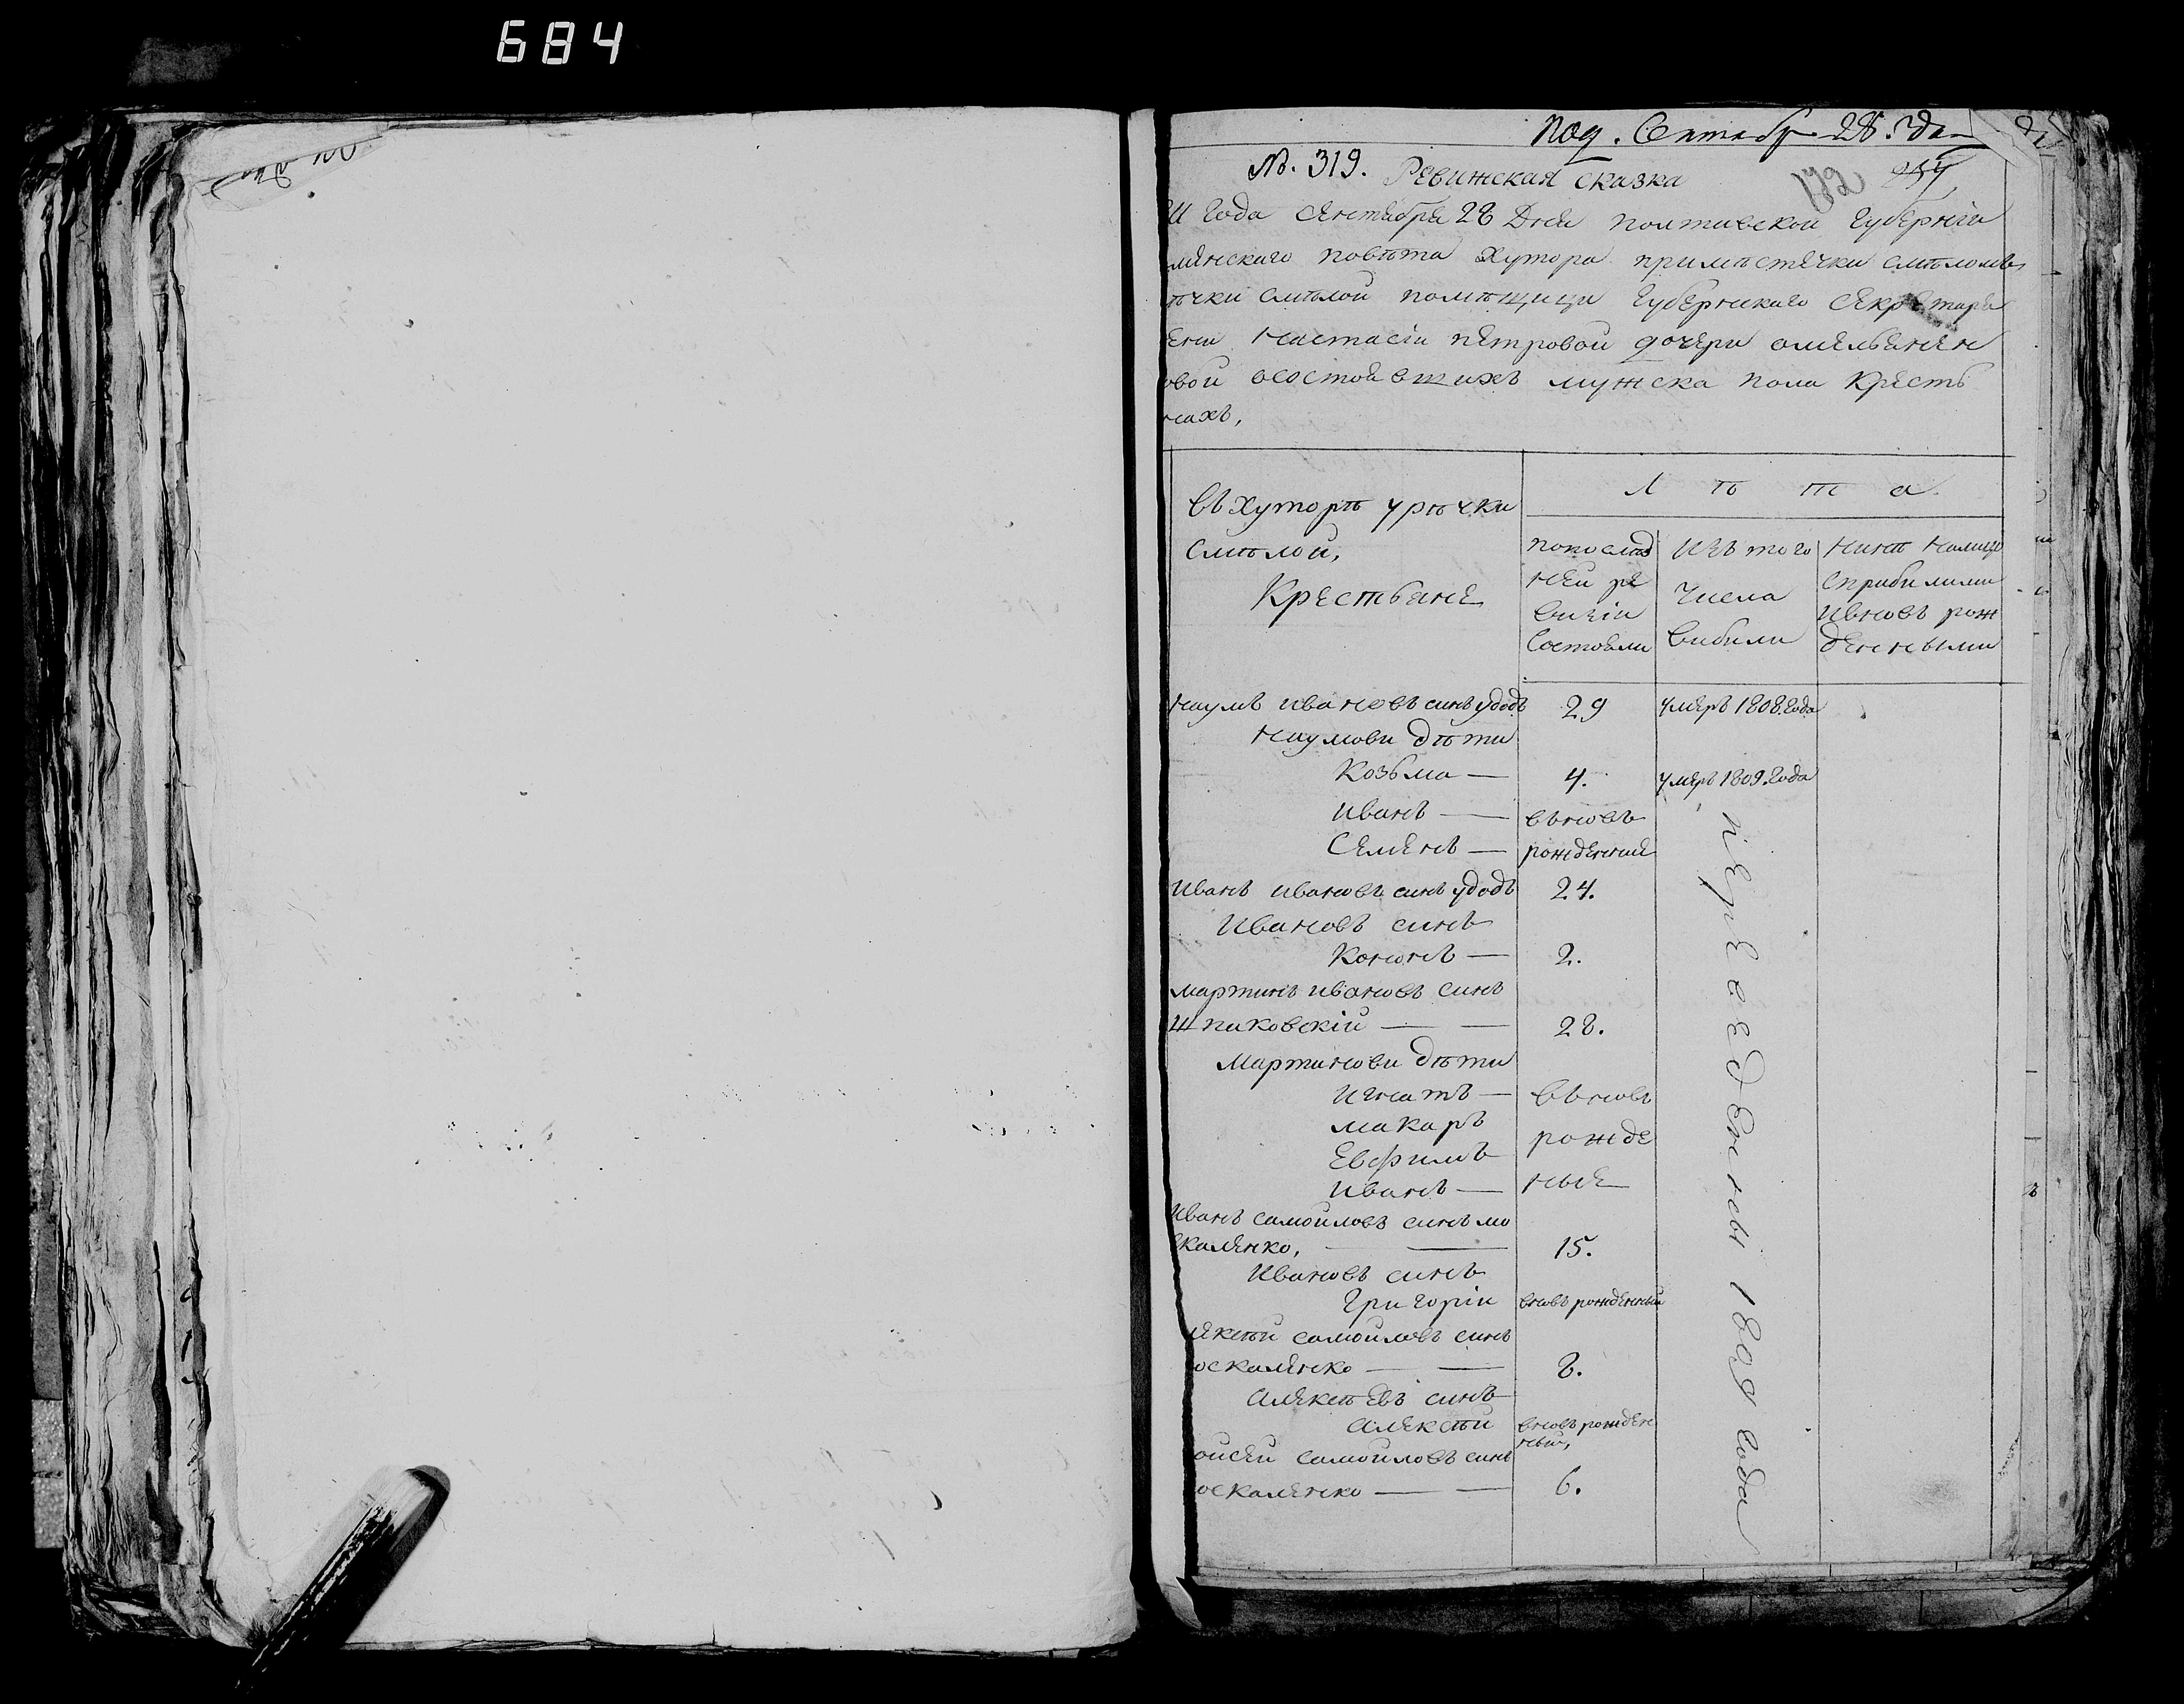 684
Под. Сентябр 28. дн
№. 319. Ревижская сказка
172 254
года сентебре 28 Дне полтавской губерніи
менскаго повѣта хутора примѣстечки смѣломъ
ѣчки смѣлой помѣщици губернскаго секретаре
ени настасіи петровой дочери омелѣенен
овой осостоевшихъ мужска пола кресть
нахъ,
въ хуторѣ урѣчки
смѣлой,
Крестьене
Л ѣ т а
попослѣд
ней ре
визіи
состоели
изъ того
числа
вибили
нинѣ налицо
сприбилими
ивновъ рож
денными
наумъ ивановъ синъ удодъ 29 умеръ 1808. года
наумови дѣти
козьма — 4. умеръ 1809. года
иванъ — вьновъ
семенъ — рожденние
иванъ ивановъ синъ удодъ 24.
ивановъ синъ
кононъ — 2.
мартинъ ивановъ синъ
шпаковскій — — 28.
мартинови дѣти
игнатъ — вьновъ
макаръ рожде
евфимъ
иванъ — ные
иванъ самойловъ синъ мо
скаленко, — — 15.
ивановъ синъ
григоріи вновъ рожденный
лексѣй самойловъ синъ
оскаленко — — 8.
алексѣевъ синъ
алексѣй вновъ рожден
ный,
ойсей самойловъ синъ
оскаленко — — 6.
переведенны 1809 года